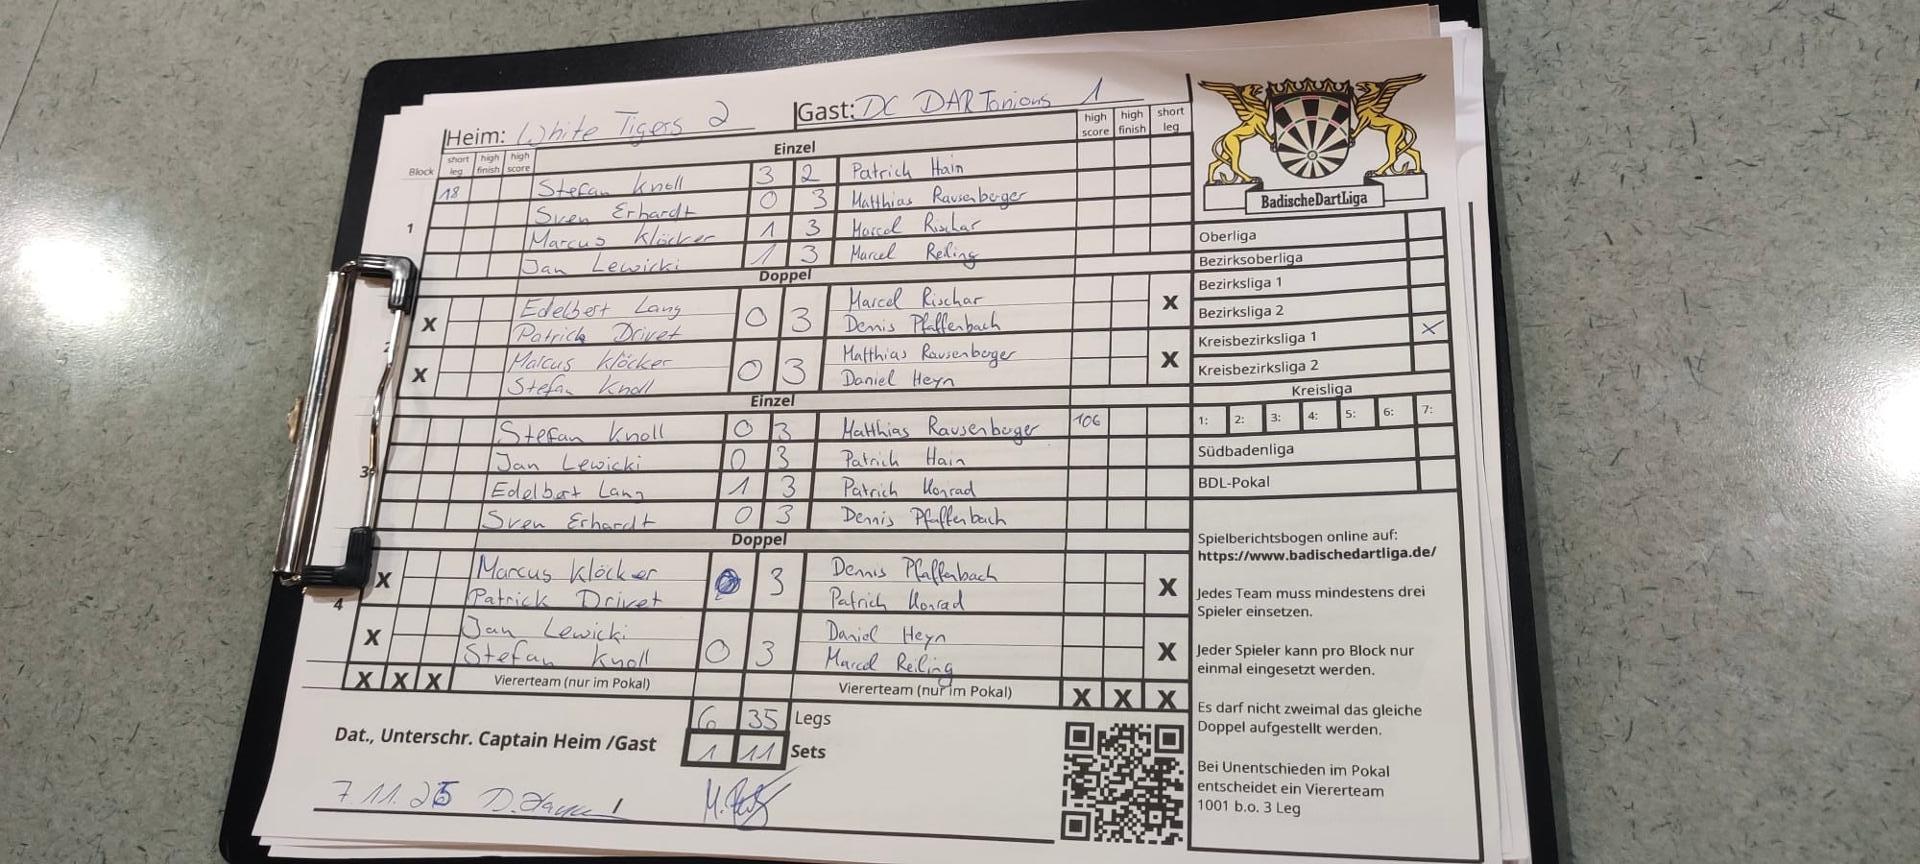 Heim: White Tigers 2 Gast: DC DARTonious 1
Block short leg high finish high score Einzel high score high finish short leg
1
18 Stefan Knoll 3 2 Patrich Hain
Sven Erhardt 0 3 Matthias Rausenberger
Marcus Klöcker 1 3 Marcel Rischar
Jan Lewicki 1 3 Marcel Reiling
Doppel
2
X Edelbert Lang 0 3 Marcel Rischar X
Patrick Drivet Dennis Pfaffenbach
X Marcus Klöcker 0 3 Matthias Rausenberger X
Stefan Knoll Daniel Heyn
Einzel
3
Stefan Knoll 0 3 Matthias Rausenberger 106
Jan Lewicki 0 3 Patrich Hain
Edelbert Lang 1 3 Patrich Konrad
Sven Erhardt 0 3 Dennis Pfaffenbach
Doppel
4
X Marcus Klöcker 3 Dennis Pfaffenbach X
Patrick Drivet Patrich Konrad
X Jan Lewicki 0 3 Daniel Heyn X
Stefan Knoll Marcel Reiling
X X X Viererteam (nur im Pokal) Viererteam (nur im Pokal) X X X
6 35 Legs
Dat., Unterschr. Captain Heim /Gast 1 11 Sets
7.11.25
BadischeDartLiga
Oberliga
Bezirksoberliga
Bezirksliga 1
Bezirksliga 2
Kreisbezirksliga 1 X
Kreisbezirksliga 2
Kreisliga
1: 2: 3: 4: 5: 6: 7:
Südbadenliga
BDL-Pokal
Spielberichtsbogen online auf:
https://www.badischedartliga.de/
Jedes Team muss mindestens drei
Spieler einsetzen.
Jeder Spieler kann pro Block nur
einmal eingesetzt werden.
Es darf nicht zweimal das gleiche
Doppel aufgestellt werden.
Bei Unentschieden im Pokal
entscheidet ein Viererteam
1001 b.o. 3 Leg